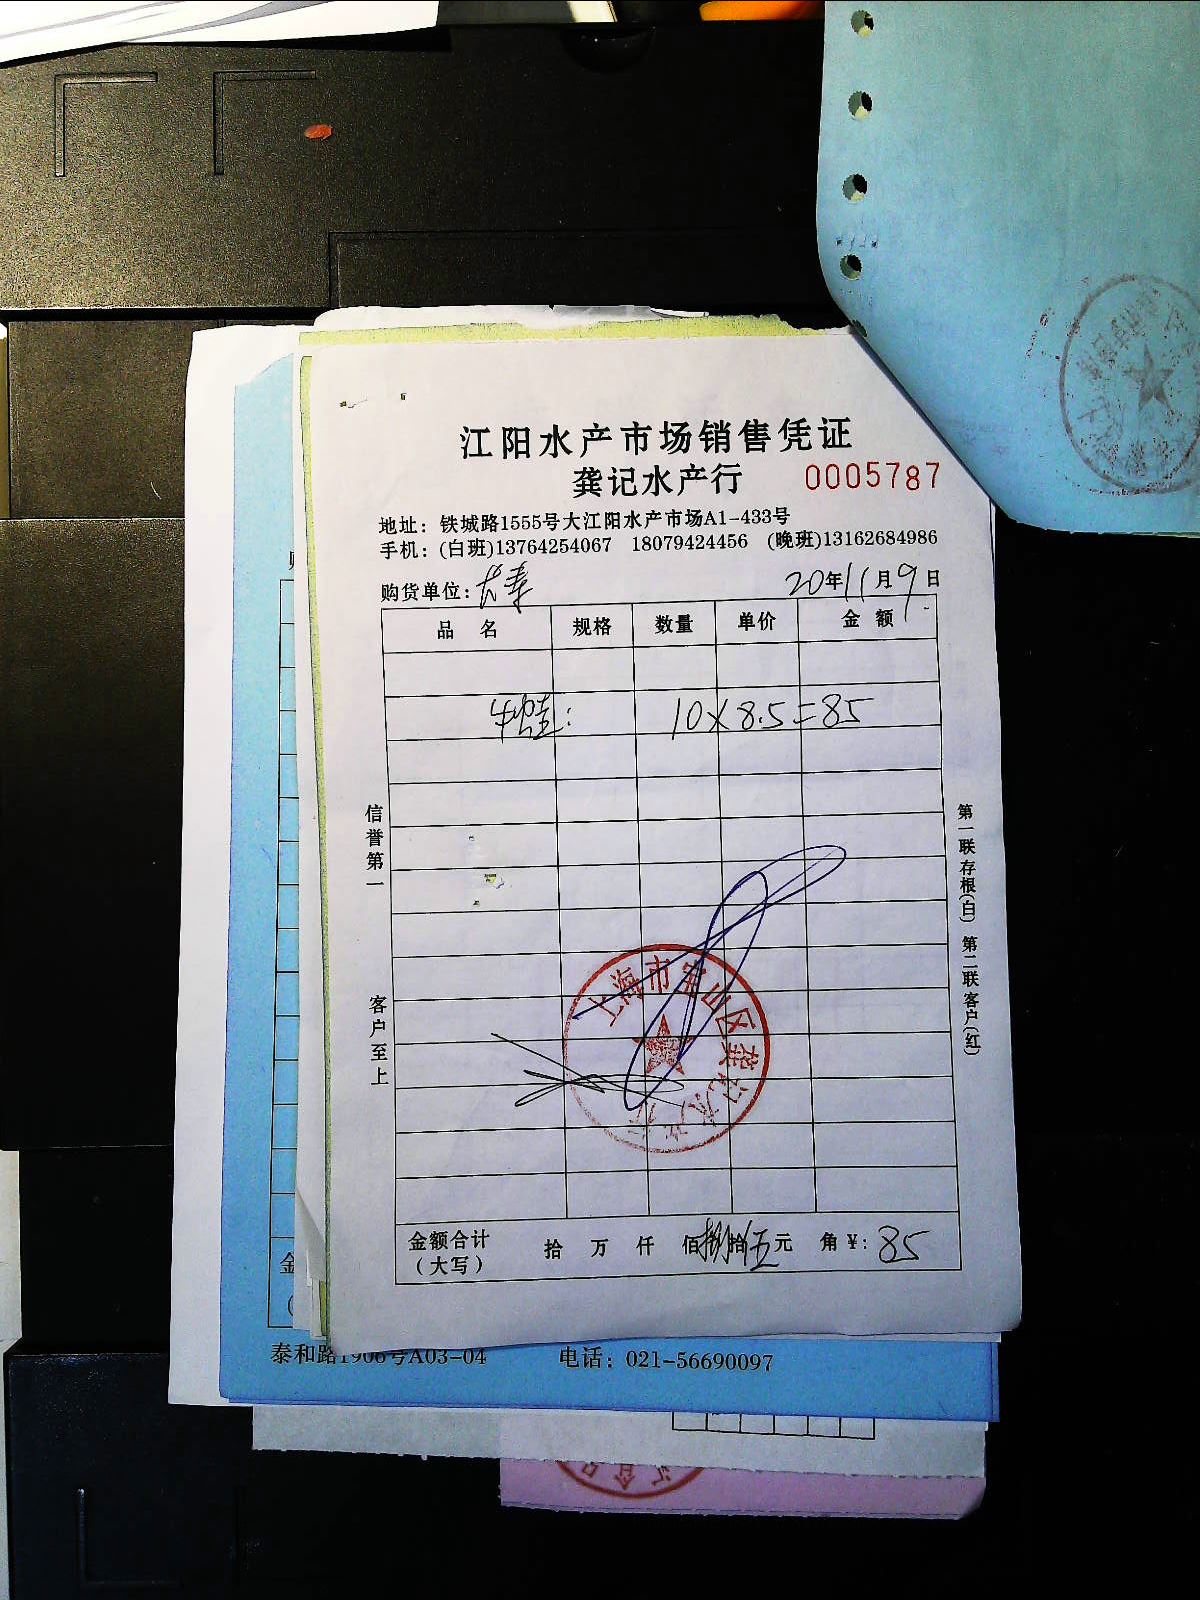 江阳水产市场销售凭证
龚记水产行 0005787
地址：铁城路1555号大江阳水产市场A1-433号
手机：(白班)13764254067 18079424456 (晚班)13162684986
购货单位：长寿 20年11月9日
品名 规格 数量 单价 金额
10×8.5=85
信誉第一
客户至上
第一联存根(白) 第二联客户(红)
上海市宝山区龚记水产行
金额合计 拾 万 仟 佰捌拾伍元 角¥: 85
(大写)
泰和路1906号A03-04 电话：021-56690097